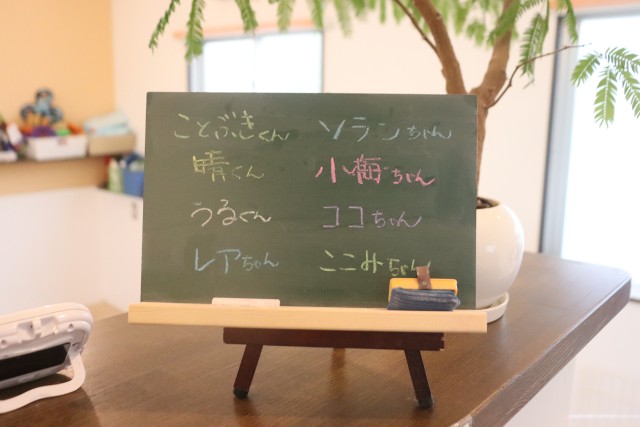 ことぶきくん
晴くん
うるくん
レアちゃん
ソランちゃん
小梅ちゃん
ココちゃん
ここみちゃん